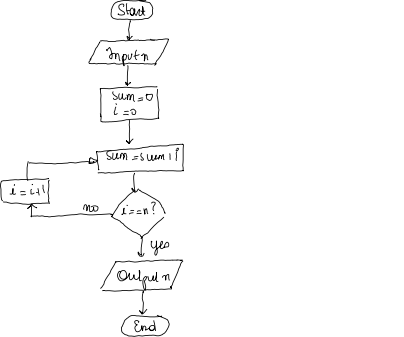 Start
Input n
sum=0
i=0
sum=sum+i
i=i+1
no
i==n?
yes
Output n
End